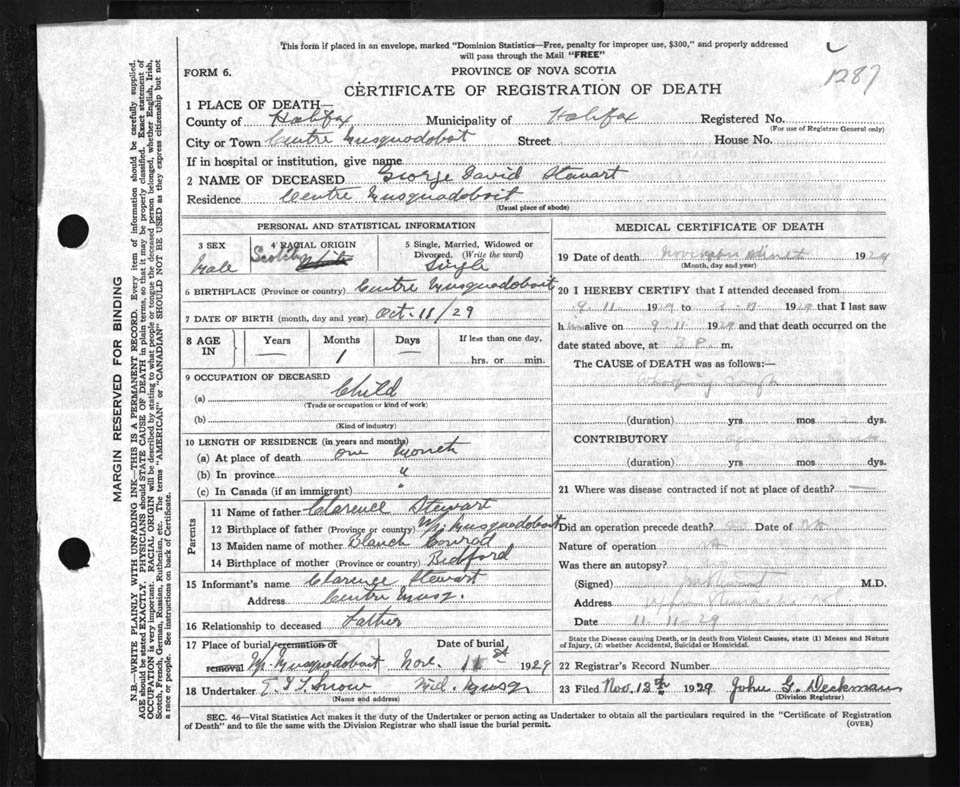 This form if placed in an envelope, marked "Dominion Statistics—Free, penalty for improper use, $300," and properly addressed
will pass through the Mail "FREE"
1287
FORM 6.
PROVINCE OF NOVA SCOTIA
CERTIFICATE OF REGISTRATION OF DEATH
1 PLACE OF DEATH—
County of Halifax Municipality of Halifax Registered No.
(For use of Registrar General only)
City or Town Centre Musquodoboit Street House No.
If in hospital or institution, give name
2 NAME OF DECEASED George David Stewart
Residence Centre Musquodoboit
(Usual place of abode)
PERSONAL AND STATISTICAL INFORMATION
3 SEX 4 RACIAL ORIGIN 5 Single, Married, Widowed or
Divorced. (Write the word)
Male Scotch White Single
6 BIRTHPLACE (Province or country) Centre Musquodoboit
7 DATE OF BIRTH (month, day and year) Oct. 11/29
8 AGE IN Years Months Days If less than one day,
1 hrs. or min.
9 OCCUPATION OF DECEASED
(a) Child
(Trade or occupation or kind of work)
(b)
(Kind of industry)
10 LENGTH OF RESIDENCE (in years and months)
(a) At place of death one Month
(b) In province "
(c) In Canada (if an immigrant) "
Parents
11 Name of father Clarence Stewart
12 Birthplace of father (Province or country) M. Musquodoboit
13 Maiden name of mother Blanch Conrad
14 Birthplace of mother (Province or country) Bedford
15 Informant's name Clarence Stewart
Address Centre Musq.
16 Relationship to deceased Father
17 Place of burial, cremation or Date of burial
removal M. Musquodoboit Nov. 11 st 1929
18 Undertaker Snow Mid. Musq
(Name and address)
MEDICAL CERTIFICATE OF DEATH
19 Date of death 1929
(Month, day and year)
20 I HEREBY CERTIFY that I attended deceased from
9. 11 1929 to 1929 that I last saw
h im alive on 9.11 1929 and that death occurred on the
date stated above, at P. m.
The CAUSE OF DEATH was as follows:—
Whooping Cough
(duration) yrs mos dys.
CONTRIBUTORY
(duration) yrs mos dys.
21 Where was disease contracted if not at place of death?
Did an operation precede death? no Date of
Nature of operation
Was there an autopsy?
(Signed) M.D.
Address
Date 11.11.29
State the Disease causing Death, or in death from Violent Causes, state (1) Means and Nature
of Injury, (2) whether Accidental, Suicidal or Homicidal.
22 Registrar's Record Number
23 Filed Nov. 13th 1929 John G. Deckman
(Division Registrar)
SEC. 46—Vital Statistics Act makes it the duty of the Undertaker or person acting as Undertaker to obtain all the particulars required in the "Certificate of Registration
of Death" and to file the same with the Division Registrar who shall issue the burial permit. (OVER)
MARGIN RESERVED FOR BINDING
N.B.—WRITE PLAINLY WITH UNFADING INK—THIS IS A PERMANENT RECORD. Every item of information should be carefully supplied.
AGE should be stated EXACTLY. PHYSICIANS should STATE CAUSE OF DEATH in plain terms, so that it may be properly classified. Exact statement of
OCCUPATION is very important. RACIAL ORIGIN will be described by stating to what people or tongue the deceased person belonged, whether English, Irish,
Scotch, French, German, Russian, Ruthenian, etc. The terms "AMERICAN" or "CANADIAN" SHOULD NOT BE USED as they express citizenship but not
a race or people. See instructions on back of Certificate.